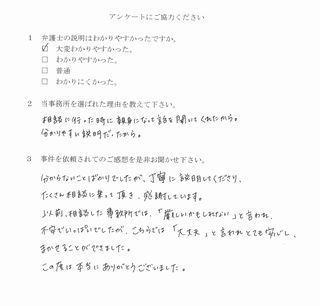 アンケートにご協力ください
1 弁護士の説明はわかりやすかったですか。
☑ 大変わかりやすかった。
□ わかりやすかった。
□ 普通
□ わかりにくかった。
2 当事務所を選ばれた理由を教えて下さい。
相談に行った時に親身になって話を聞いてくれたから。
分かりやすい説明だったから。
3 事件を依頼されてのご感想を是非お聞かせ下さい。
分からないことばかりでしたが、丁寧に説明してくださり、
たくさん相談に乗って頂き、感謝しています。
以前、相談した事務所では、「厳しいかもしれない」と言われ、
不安でいっぱいでしたが、こちらでは「大丈夫」と言われとても安心し、
まかせることができました。
この度は本当にありがとうございました。